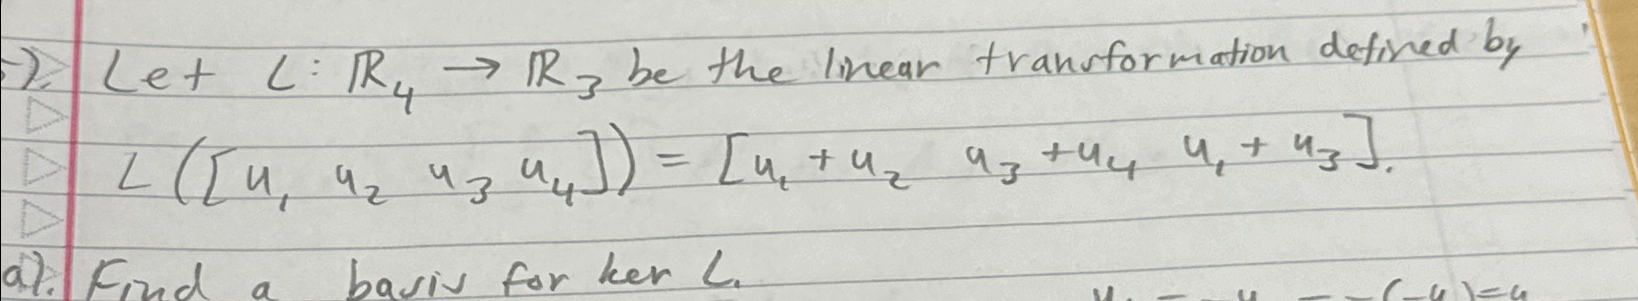 5). Let L: ℝ₄ → ℝ₃ be the linear transformation defined by
L([u₁ u₂ u₃ u₄]) = [u₁+u₂ u₃+u₄ u₁+u₃].
a). Find a basis for ker L.